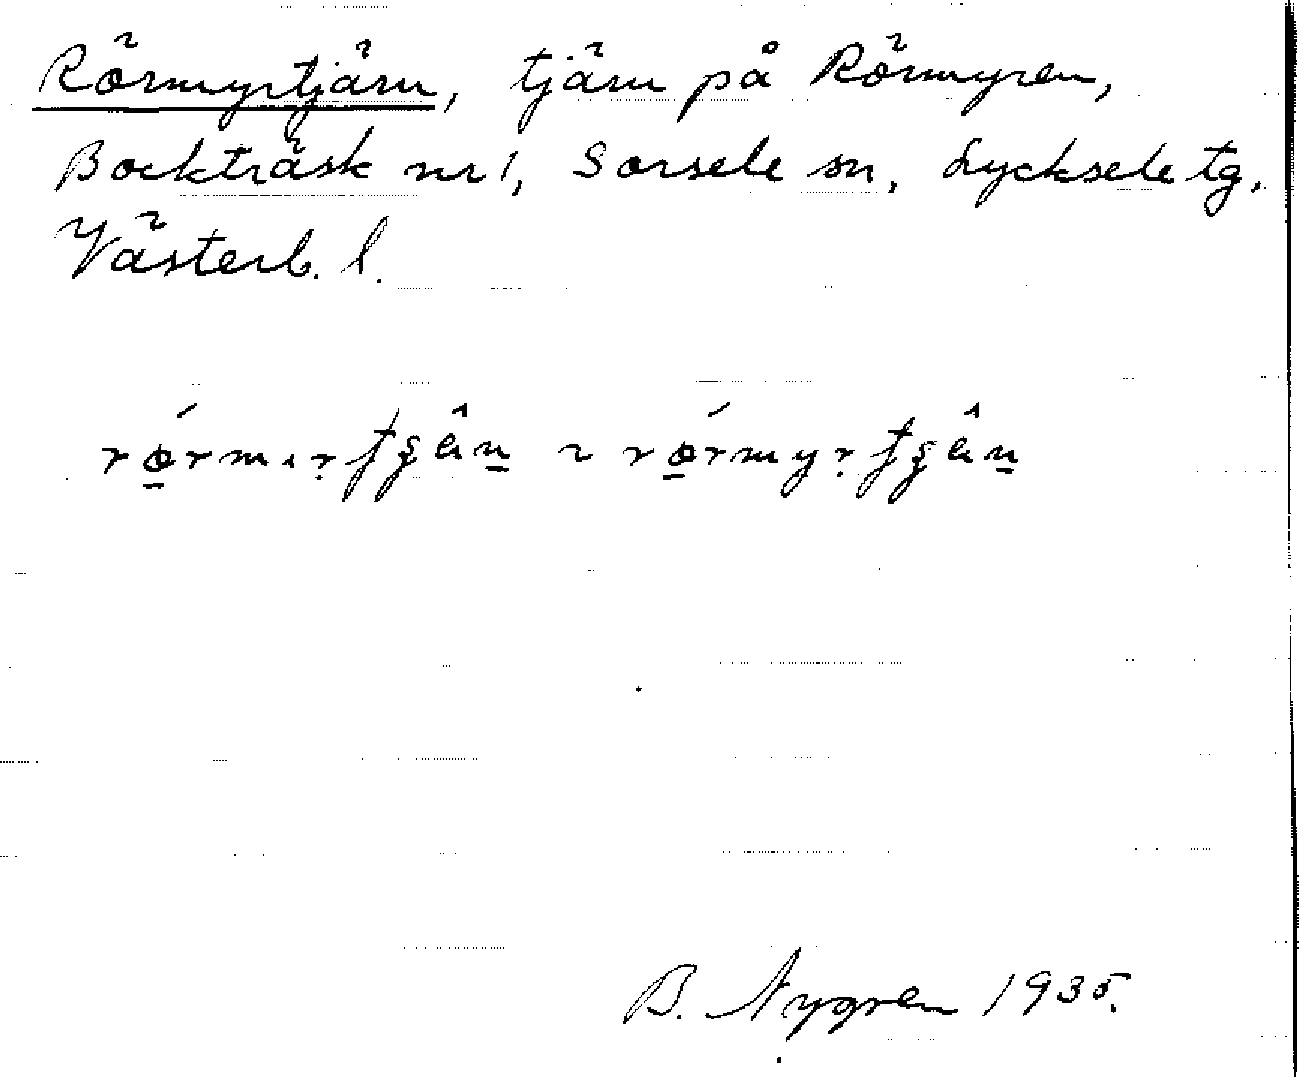 Rörmyrtjärn, tjärn på Rörmyren,
Bockträsk nr 1, Sorsele sn, Lycksele tg,
Västerb. l.
B. Nygren 1935.